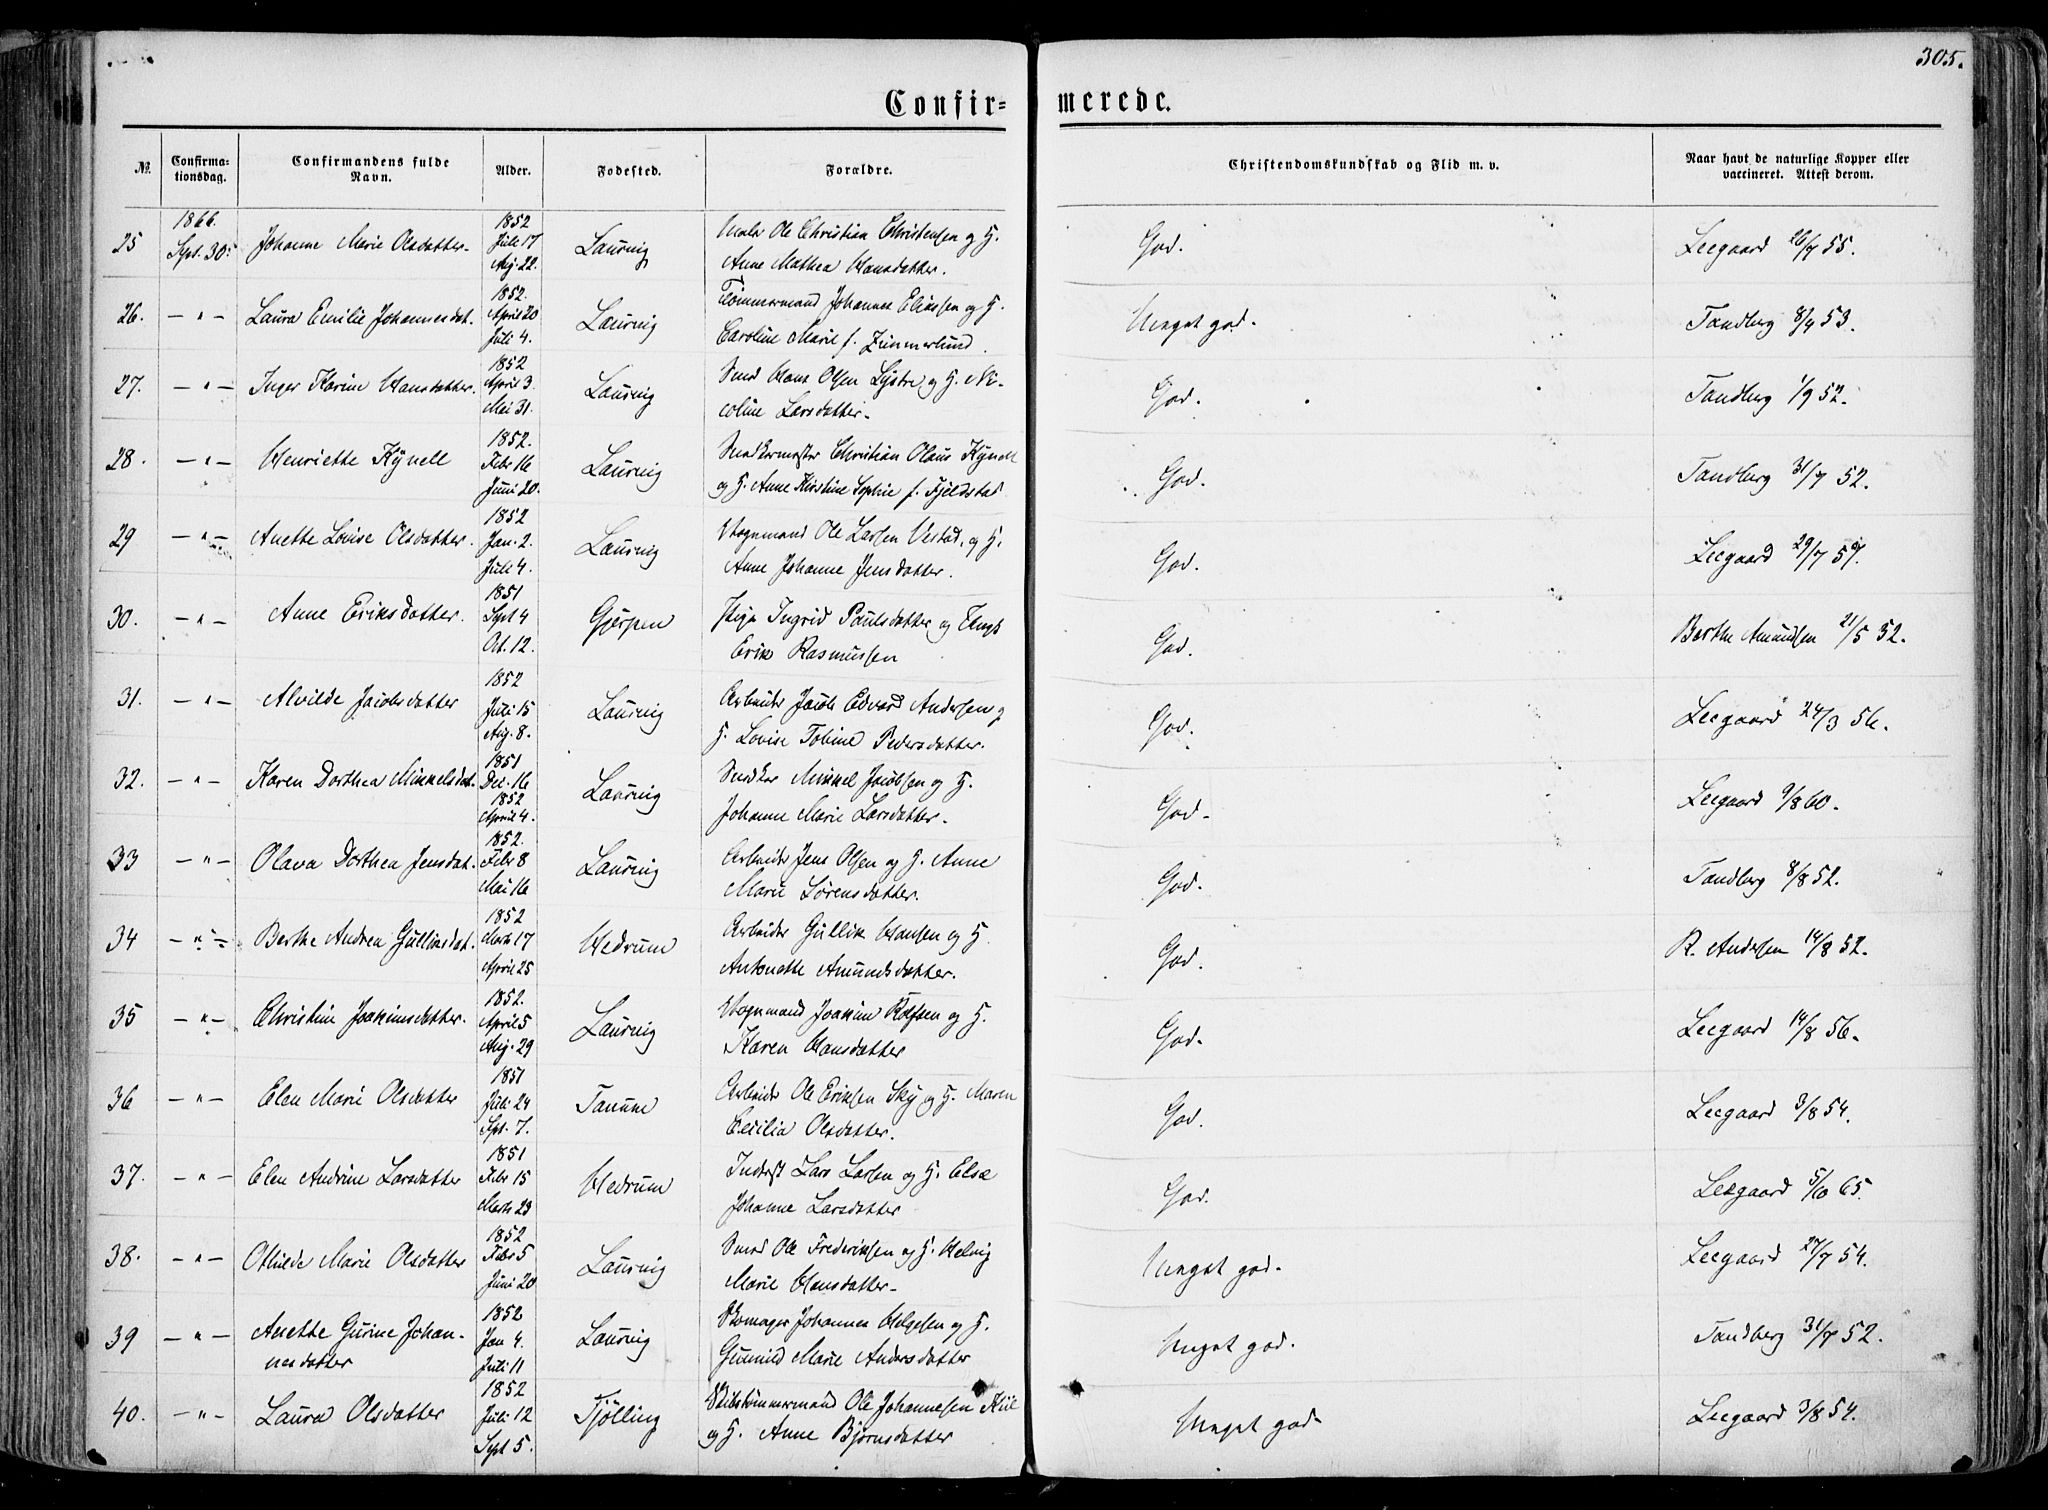 305.
Confir-
merede.
№
Confirma-
tionsdag.
Confirmandens fulde
Navn.
Alder.
Fødested.
Forældre.
Christendomskundskab og Flid m. v.
Naar havt de naturlige Kopper eller
vaccineret. Attest derom.
1866. 1852
25 Sept. 30. Johanne Marie Olsdatter. Juli 17 Laurvig Ole Christian Christensen og H. God. Leegaard 26/7 55.
Aug. 22. Anne Mathea Hansdatter.
1852.
26. — " — Laura Emilie Johannesdat. April 20 Laurvig Tømmermand Johannes Eliassen og H. Meget god. Tandberg 8/9 53.
Juli 4. Caroline Marie f. Zimmerlund.
1852
27. — " — Inger Karine Hansdatter. April 3. Laurvig Smed Hans Olsen Lystre og H. Ni- God. Tandberg 1/9 52.
Mai 31. coline Larsdatter.
1852.
28. — " — Henriette Kynell Febr 16 Laurvig Snedkermester Christian Olaus Kynell God. Tandberg 31/7 52.
Juni 20. og H. Anne Kirstine Sophie f. Fjeldstad
1852
29 — " — Anette Lovise Olsdatter. Jan. 2. Laurvig Vognmand Ole Larsen Vestad, og H. God. Leegaard 29/7 57.
Juli 4. Anne Johanne Jensdatter.
1851
30. — " — Anne Eriksdatter. Sept 4 Gjerpen Pige Ingrid Paulsdatter og God. Berthe Amundsen 21/5 52.
Oct. 12. Erik Rasmussen
1852
31. — " — Alvilde Jacobsdatter Juli 15 Laurvig Arbeider Jacob Edvard Andersen og God. Leegaard 24/3 56.
Aug. 8. H. Lovise Tobine Pedersdatter.
1851
32. — " — Karen Dorthea Mikkelsdat. Dec. 16 Laurvig Snedker Mikkel Jacobsen og H. God. Leegaard 9/8 60.
1852
April 4. Johanne Marie Larsdatter.
1852.
33 — " — Olava Dorthea Jensdat. Febr 8 Laurvig Arbeider Jens Olsen og H. Anne God. Tandberg 8/8 52.
Mai 16 Marie Sørensdatter.
1852
34 — " — Berthe Andrea Gulliksdat. Marts 17 Hedrum Arbeider Gullik Hansen og H. God. R. Andersen 14/8 52.
April 25 Antonette Amundsdatter.
1852.
35 — " — Christine Joakimsdatter. April 5 Laurvig Vognmand Joakim Rolfsen og H. God. Leegaard 14/8 56.
Aug. 29 Karen Hansdatter
1851
36 — " — Elen Marie Olsdatter Juli 24 Tanum Arbeider Ole Eriksen Sky og H. Maren God. Leegaard 3/8 54.
Spt. 7. Cecilia Olsdatter.
1851
37. — " — Elen Andrine Larsdatter Febr 15 Hedrum Inderst Lars Larsen og H. Else God. Leegaard 5/10 65.
Marts 23 Johanne Larsdatter
1852
38. — " — Othilde Marie Olsdatter Febr 5 Laurvig Smed Ole Frederiksen og H. Helvig Meget god. Leegaard 27/7 54.
Juni 20 Marie Hansdatter
1852
39 — " — Anette Gurine Johan- Jan 4. Laurvig Skomager Johannes Helgesen og H. Meget god. Tandberg 31/7 52.
nesdatter Juli 11 Gunnild Marie Andersdatter
1852
40. — " — Laura Olsdatter Juli 12 Tjølling Skibstømmermand Ole Johannesen Kiil Meget god. Leegaard 3/8 54.
Sept 5. og H. Anne Bjørnsdatter